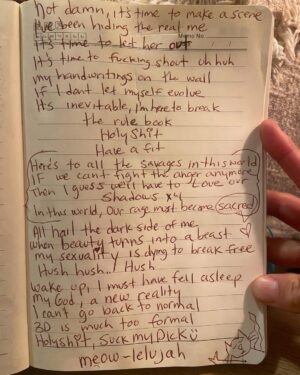 Hot damn, it's time to make a scene
I've been hiding the real me
Memo No.
It's time to let her out
It's time to fucking shout uh huh
my handwritings on the wall
If I dont let myself evolve
It's inevitable, I'm here to break
the rule book
Holy Shit
Have a fit
Here's to all the Savages in this world
If we can't fight the anger anymore
Then I guess we'll have to Love our
Shadows x4
In this world, Our rage must become sacred
All hail the dark side of me
when beauty turns into a beast
my sexuality is dying to break free
Hush hush.. / Hush
wake up, I must have fell asleep
My God, a new reality
I can't go back to normal
3D is much too formal
Holyshit, Suck my Dick
meow-lelujah